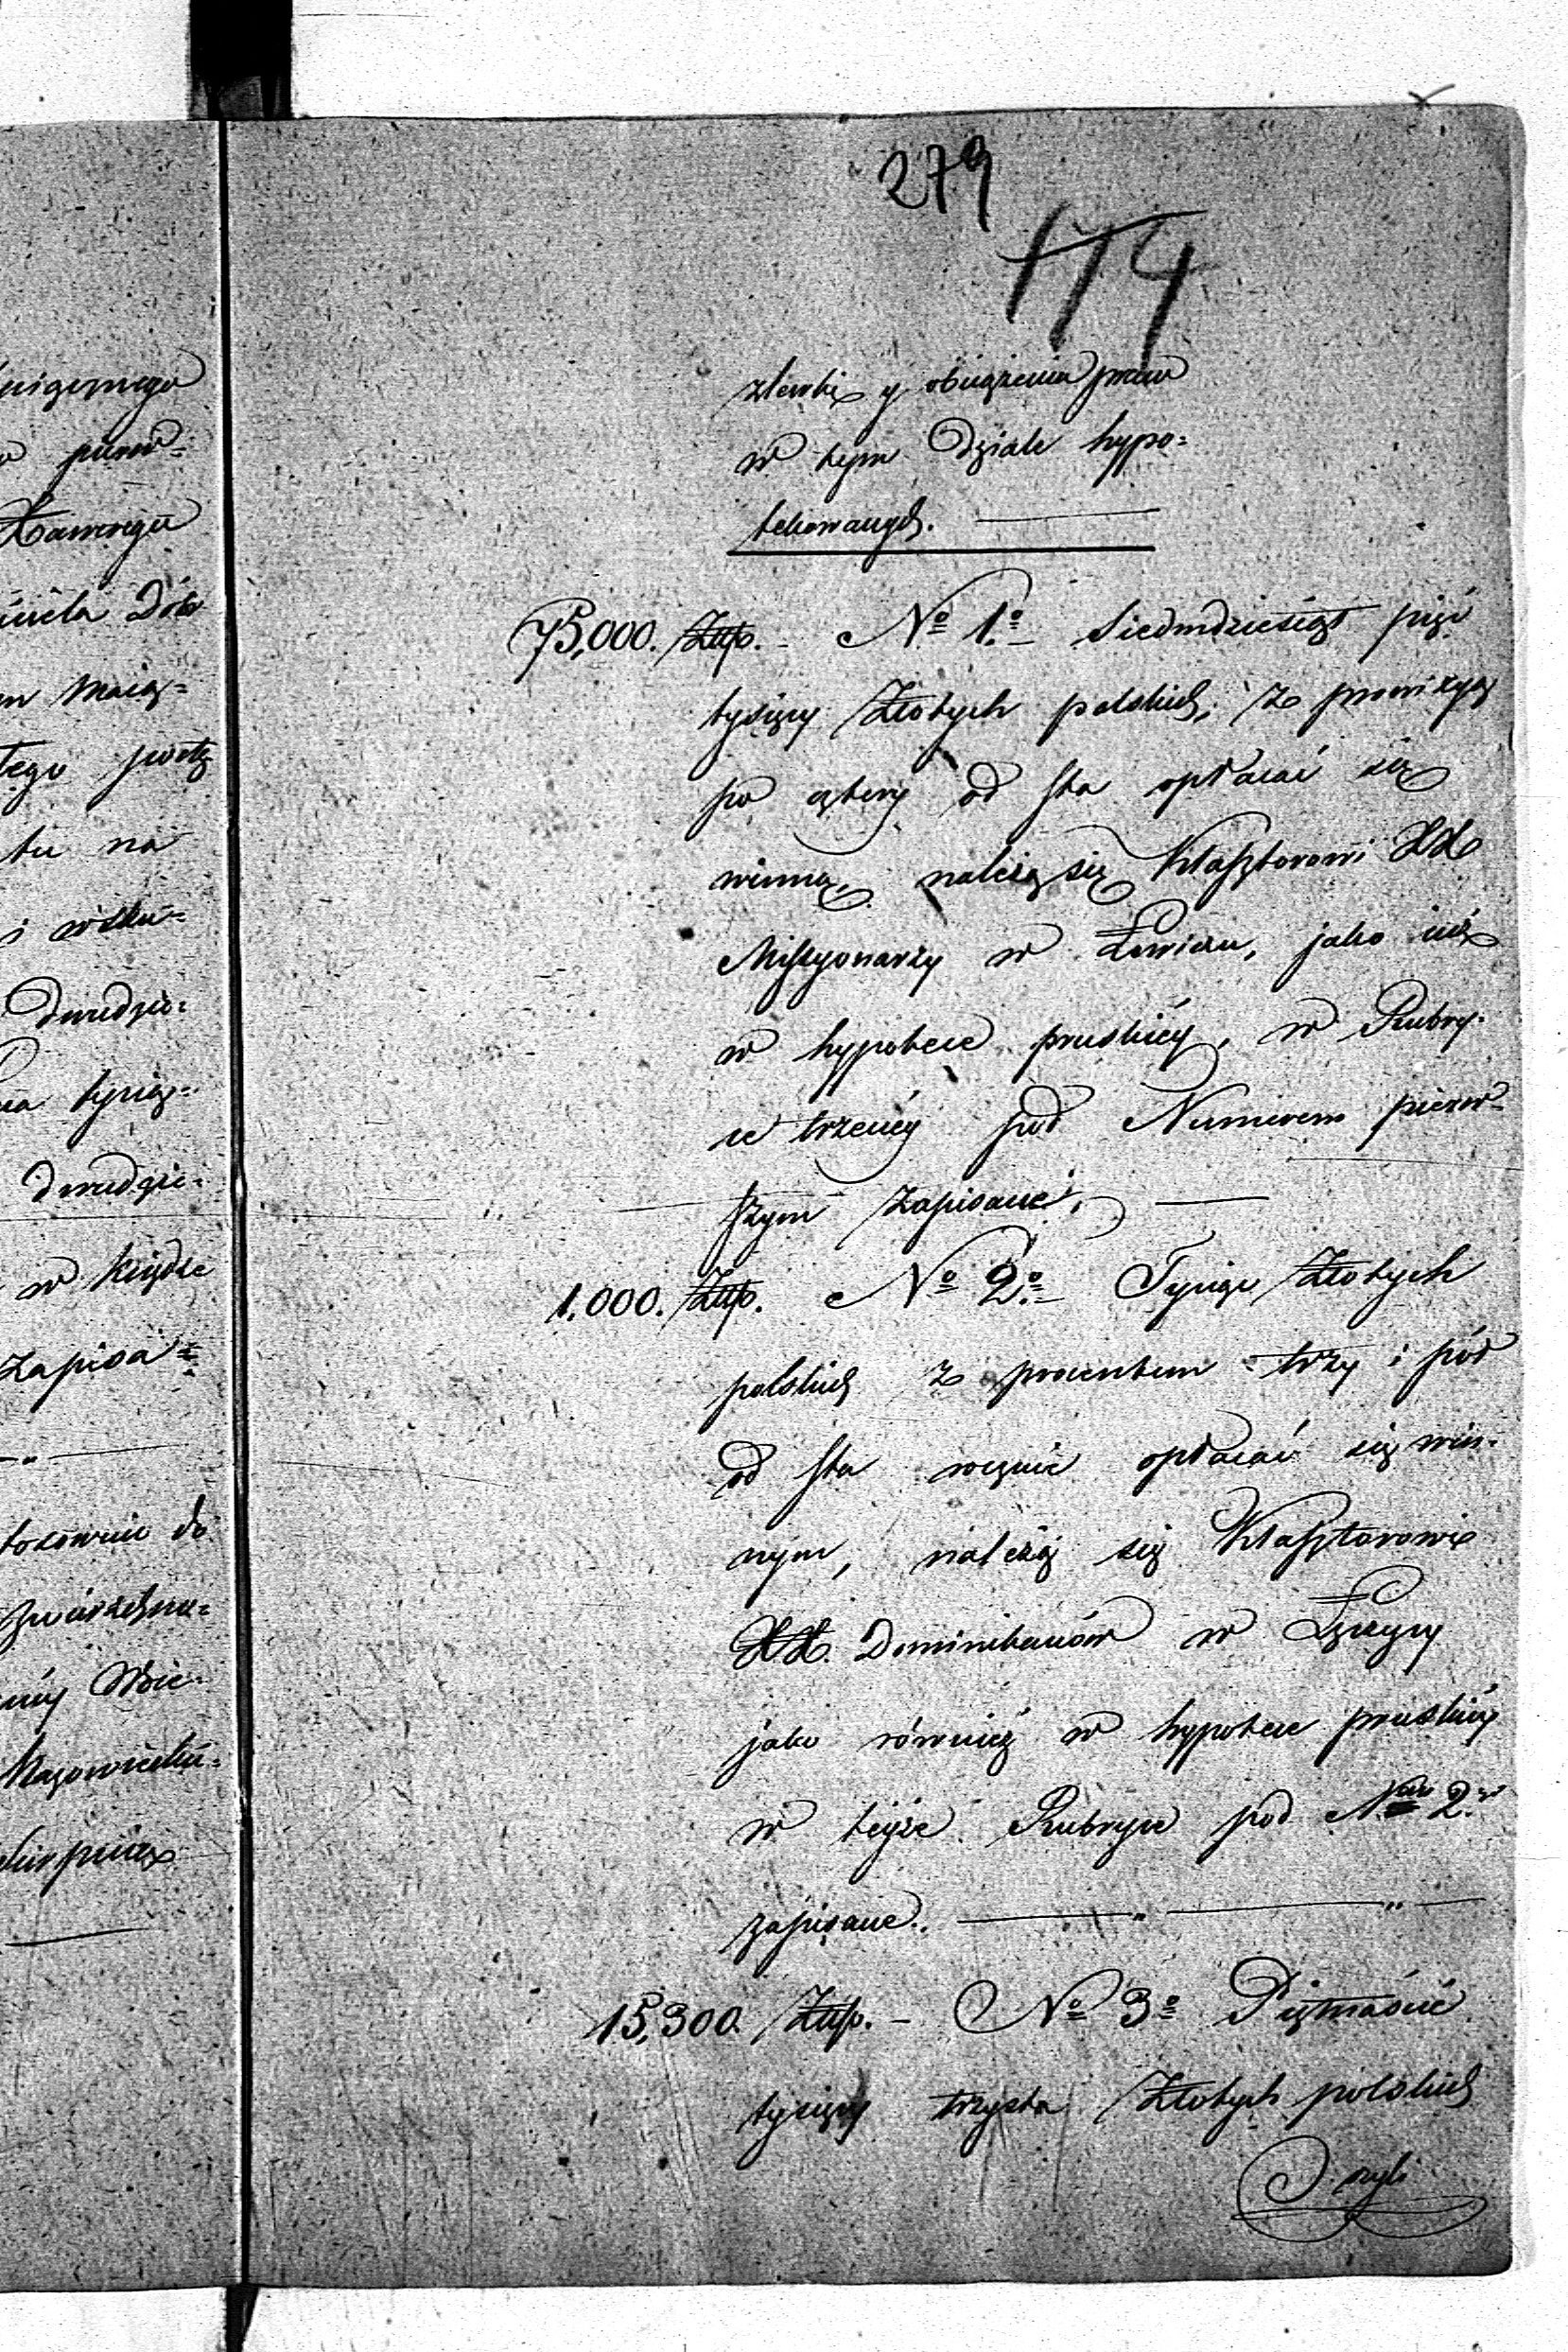 279
114
zlewki y obciążenia praw
w tym Dziale hypo=
tekowanych.
75,000. Złłp. - No 1o Siedmdziesiąt pięć
tysięcy Złotych polskich, z prowizyą
po cztery od sta opłacać się
winną, należą się Klasztorowi XX
Missyonarzy w Łowiczu, jako już
w hypotece pruskiéy, w Rubry=
ce trzeciéy pod Numerem pierw=
szym zapisane.
1,000. Złłp. No 2o Tysiąc Złotych
polskich z procentem trzy i pół
od sta rocznie opłacać się win=
nym, należą się Klasztorowi
XX. Dominikanów w Łęczycy
jako również w hypotece pruskiéy
w teyże Rubryce pod Nrem 2.
zapisane.
15,300. Złłp. - No 3o Piętnaście
tysięcy trzysta Złotych polskich
w tym
Xawerego
Dóbr
tego
tu na
i
Dwudzie=
tysiąc=
Dwudzie=
w Księdze
zapisa=
do
Mazowieckie=